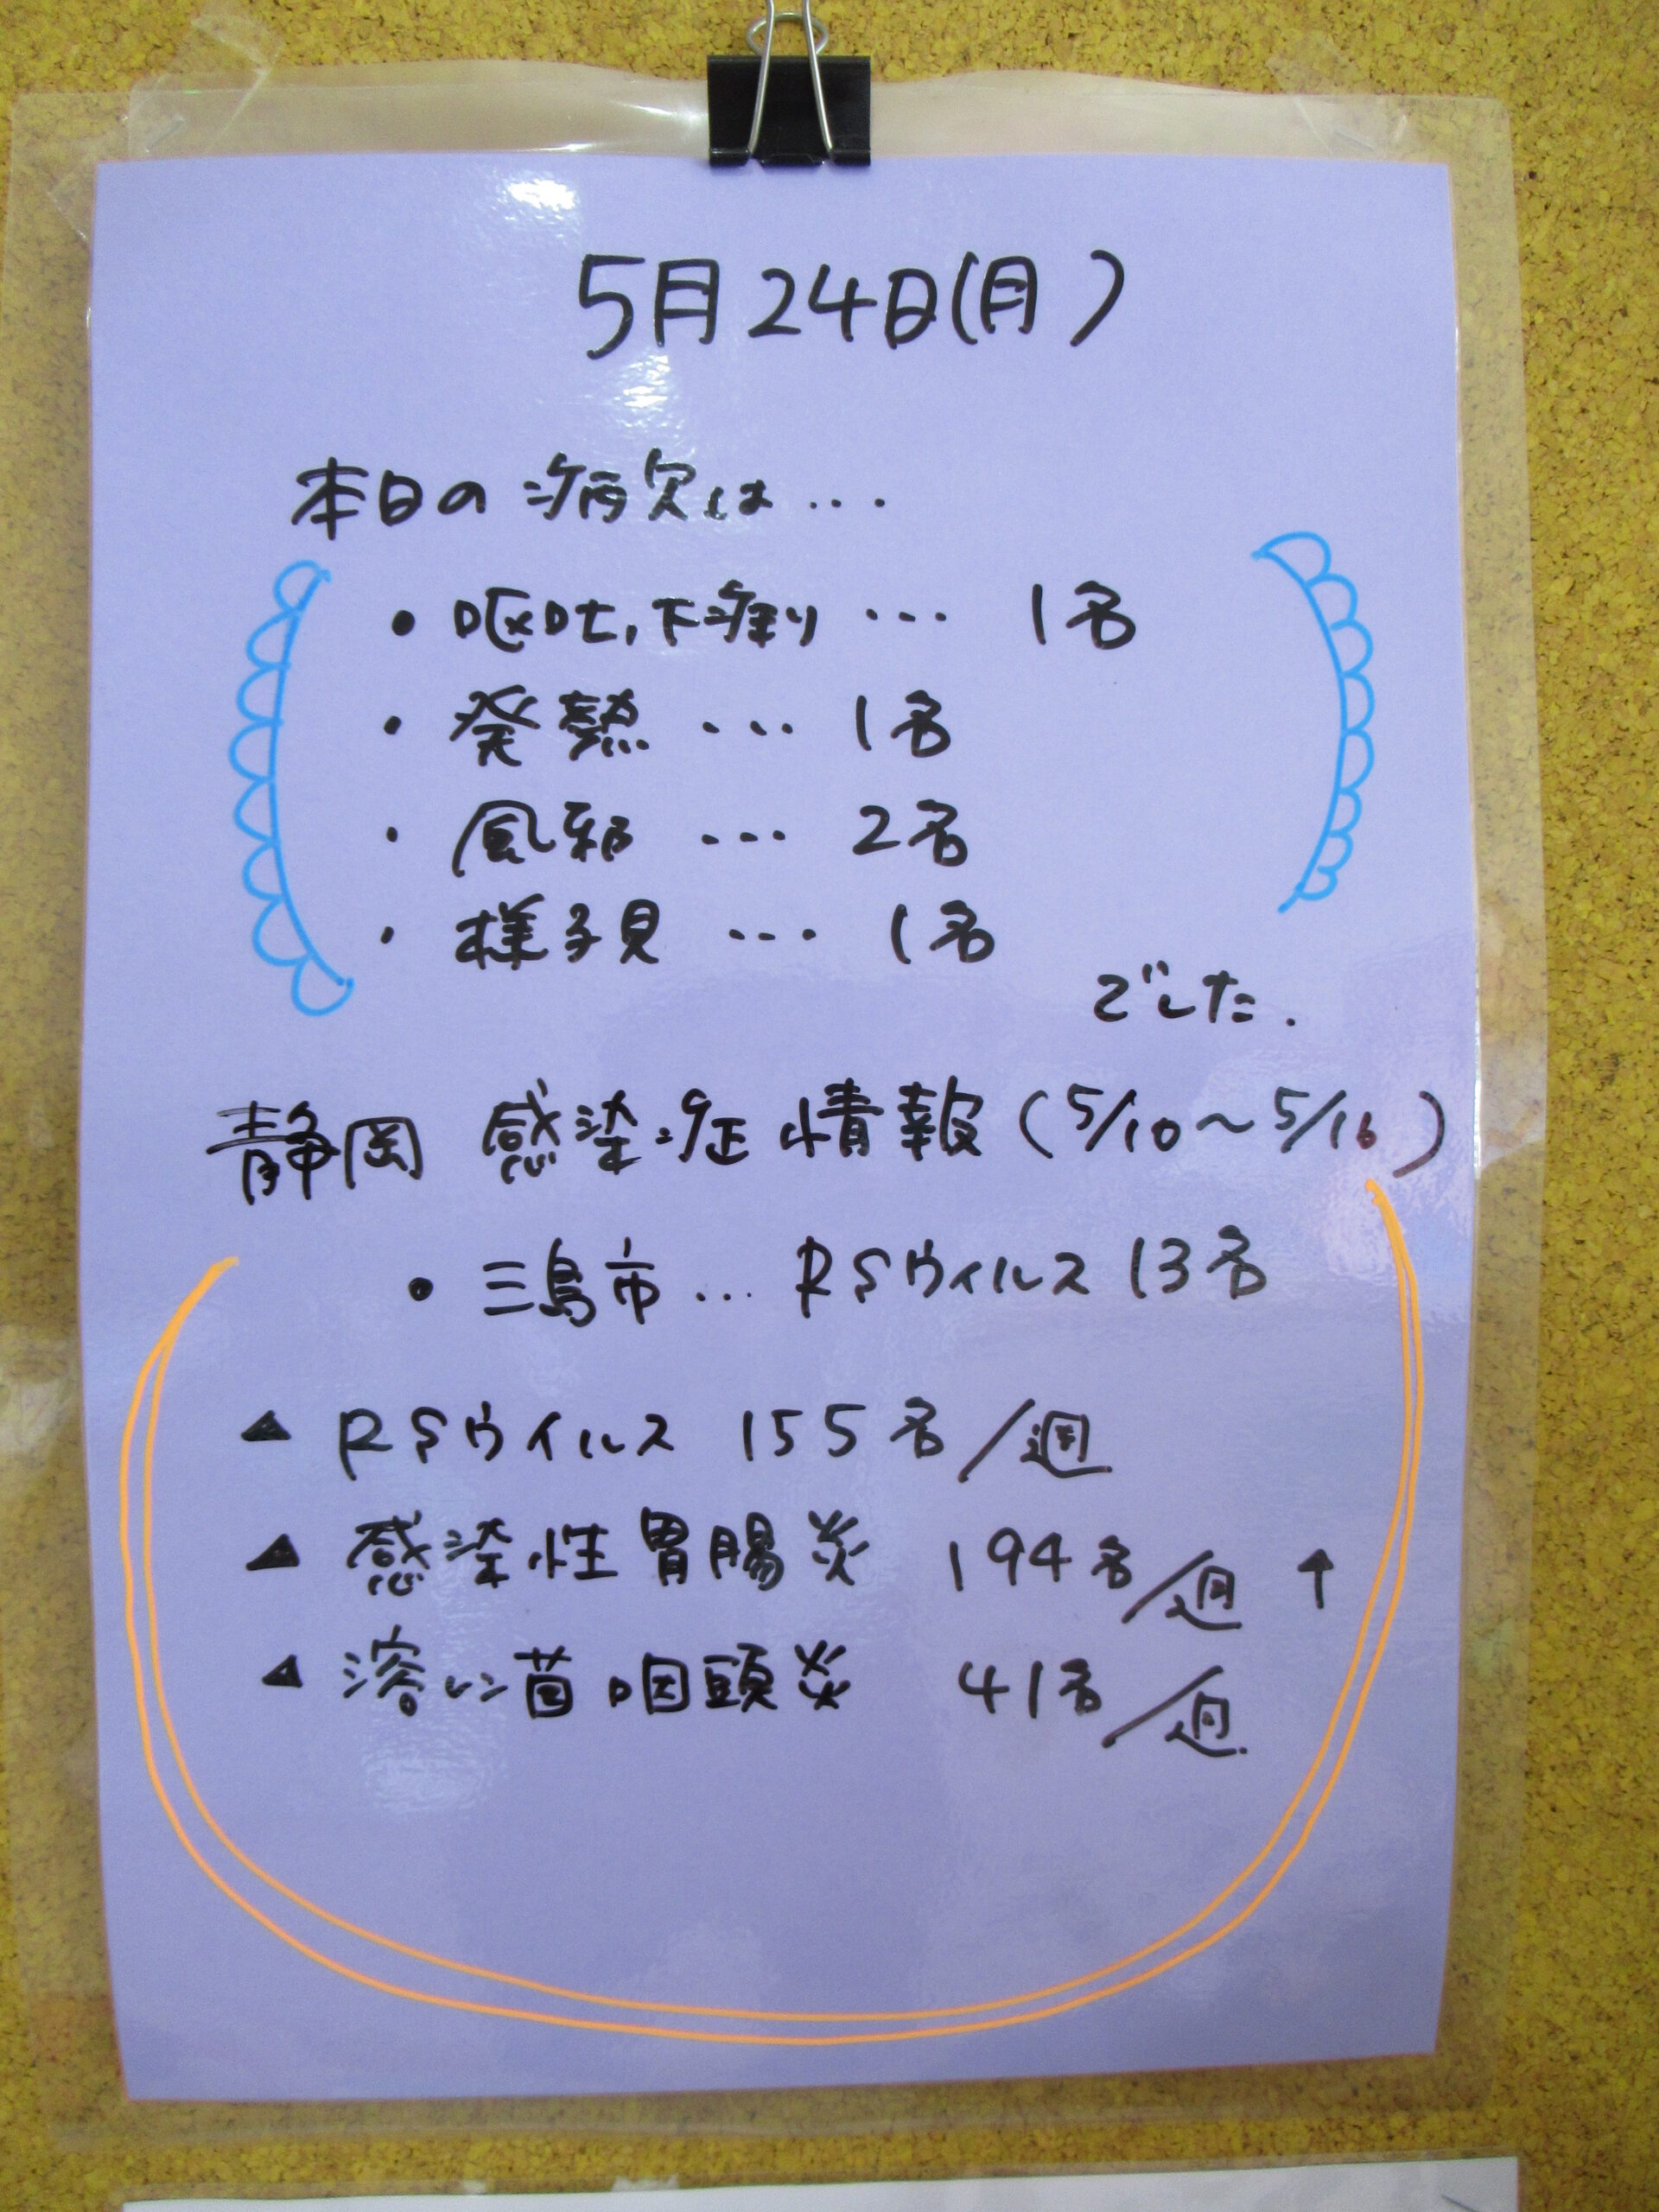 5月24日(月)
本日の病欠は...
・嘔吐,下痢り ... 1名
・発熱 ... 1名
・風邪 ... 2名
・様子見 ... 1名
でした.
静岡 感染症情報 (5/10～5/16)
・三島市... RSウィルス 13名
▲ RSウイルス 155名/週
▲ 感染性胃腸炎 194名/週 ↑
▲ 溶レン菌咽頭炎 41名/週.